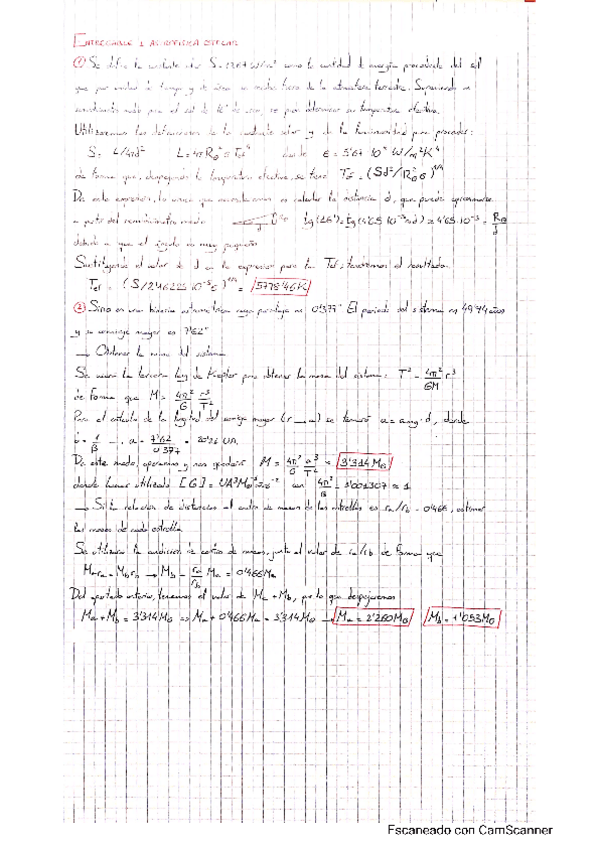 ENTREGABLE 1 ASTROFÍSICA ESTELAR
① Se define la constante solar S = W/m² como la cantidad de energía procedente del sol
que por unidad de tiempo y de área se recibe fuera de la atmósfera terrestre. Suponiendo
para el sol de se pide determinar su temperatura efectiva.
Utilizaremos las definiciones de la constante solar y de la luminosidad para proceder:
S = L/4πd² L = 4πR☉²σTef⁴ donde σ = 5'67·10⁻⁸ W/m²K⁴
de forma que, despejando la temperatura efectiva, se tiene Tef = (Sd²/R☉²σ)^1/4
De esta expresión, lo único que es calcular la distancia d, que puede aproximarse
a partir del semidiámetro medio tg(16') = tg(4'65·10⁻³ rad) ≈ 4'65·10⁻³ = R☉/d
debido a que el ángulo es muy pequeño
Sustituyendo el valor de d en la expresión para la Tef, tendremos el resultado.
Tef = (S/2'16225·10⁻⁵σ)^1/4 = 5778'46K
② Sirio es una binaria astrométrica cuya paralaje es 0'377". El periodo del sistema es 49'94 años
y su semieje mayor es 7'62"
→ Obtener la masa del sistema
Se usará la tercera ley de Kepler para obtener la masa del sistema: T² = 4π²/GM r³
de forma que M = 4π²/G r³/T²
Para el cálculo de la longitud del semieje mayor (r → a) se tomará a = ang·d, donde
d = 1/β → a = 7'62/0'377 = 20'21 UA
De este modo, operamos y nos queda M = 4π²/G a³/T² = 3'314M☉
donde hemos utilizado [G] = UA³M☉⁻¹años⁻² con 4π²/G = 1'001307 ≈ 1
→ Si la relación de distancias al centro de masas de las estrellas es ra/rb = 0'466, estimar
las masas de cada estrella
Se utiliza la condición de centro de masas, junto al valor de ra/rb, de forma que
Mara = Mbrb → Mb = ra/rb Ma = 0'466Ma
Del apartado anterior, tenemos el valor de Ma + Mb, por lo que despejaremos
Ma + Mb = 3'314M☉ ⇒ Ma + 0'466Ma = 3'314M☉ → Ma = 2'260M☉ Mb = 1'053M☉
Escaneado con CamScanner